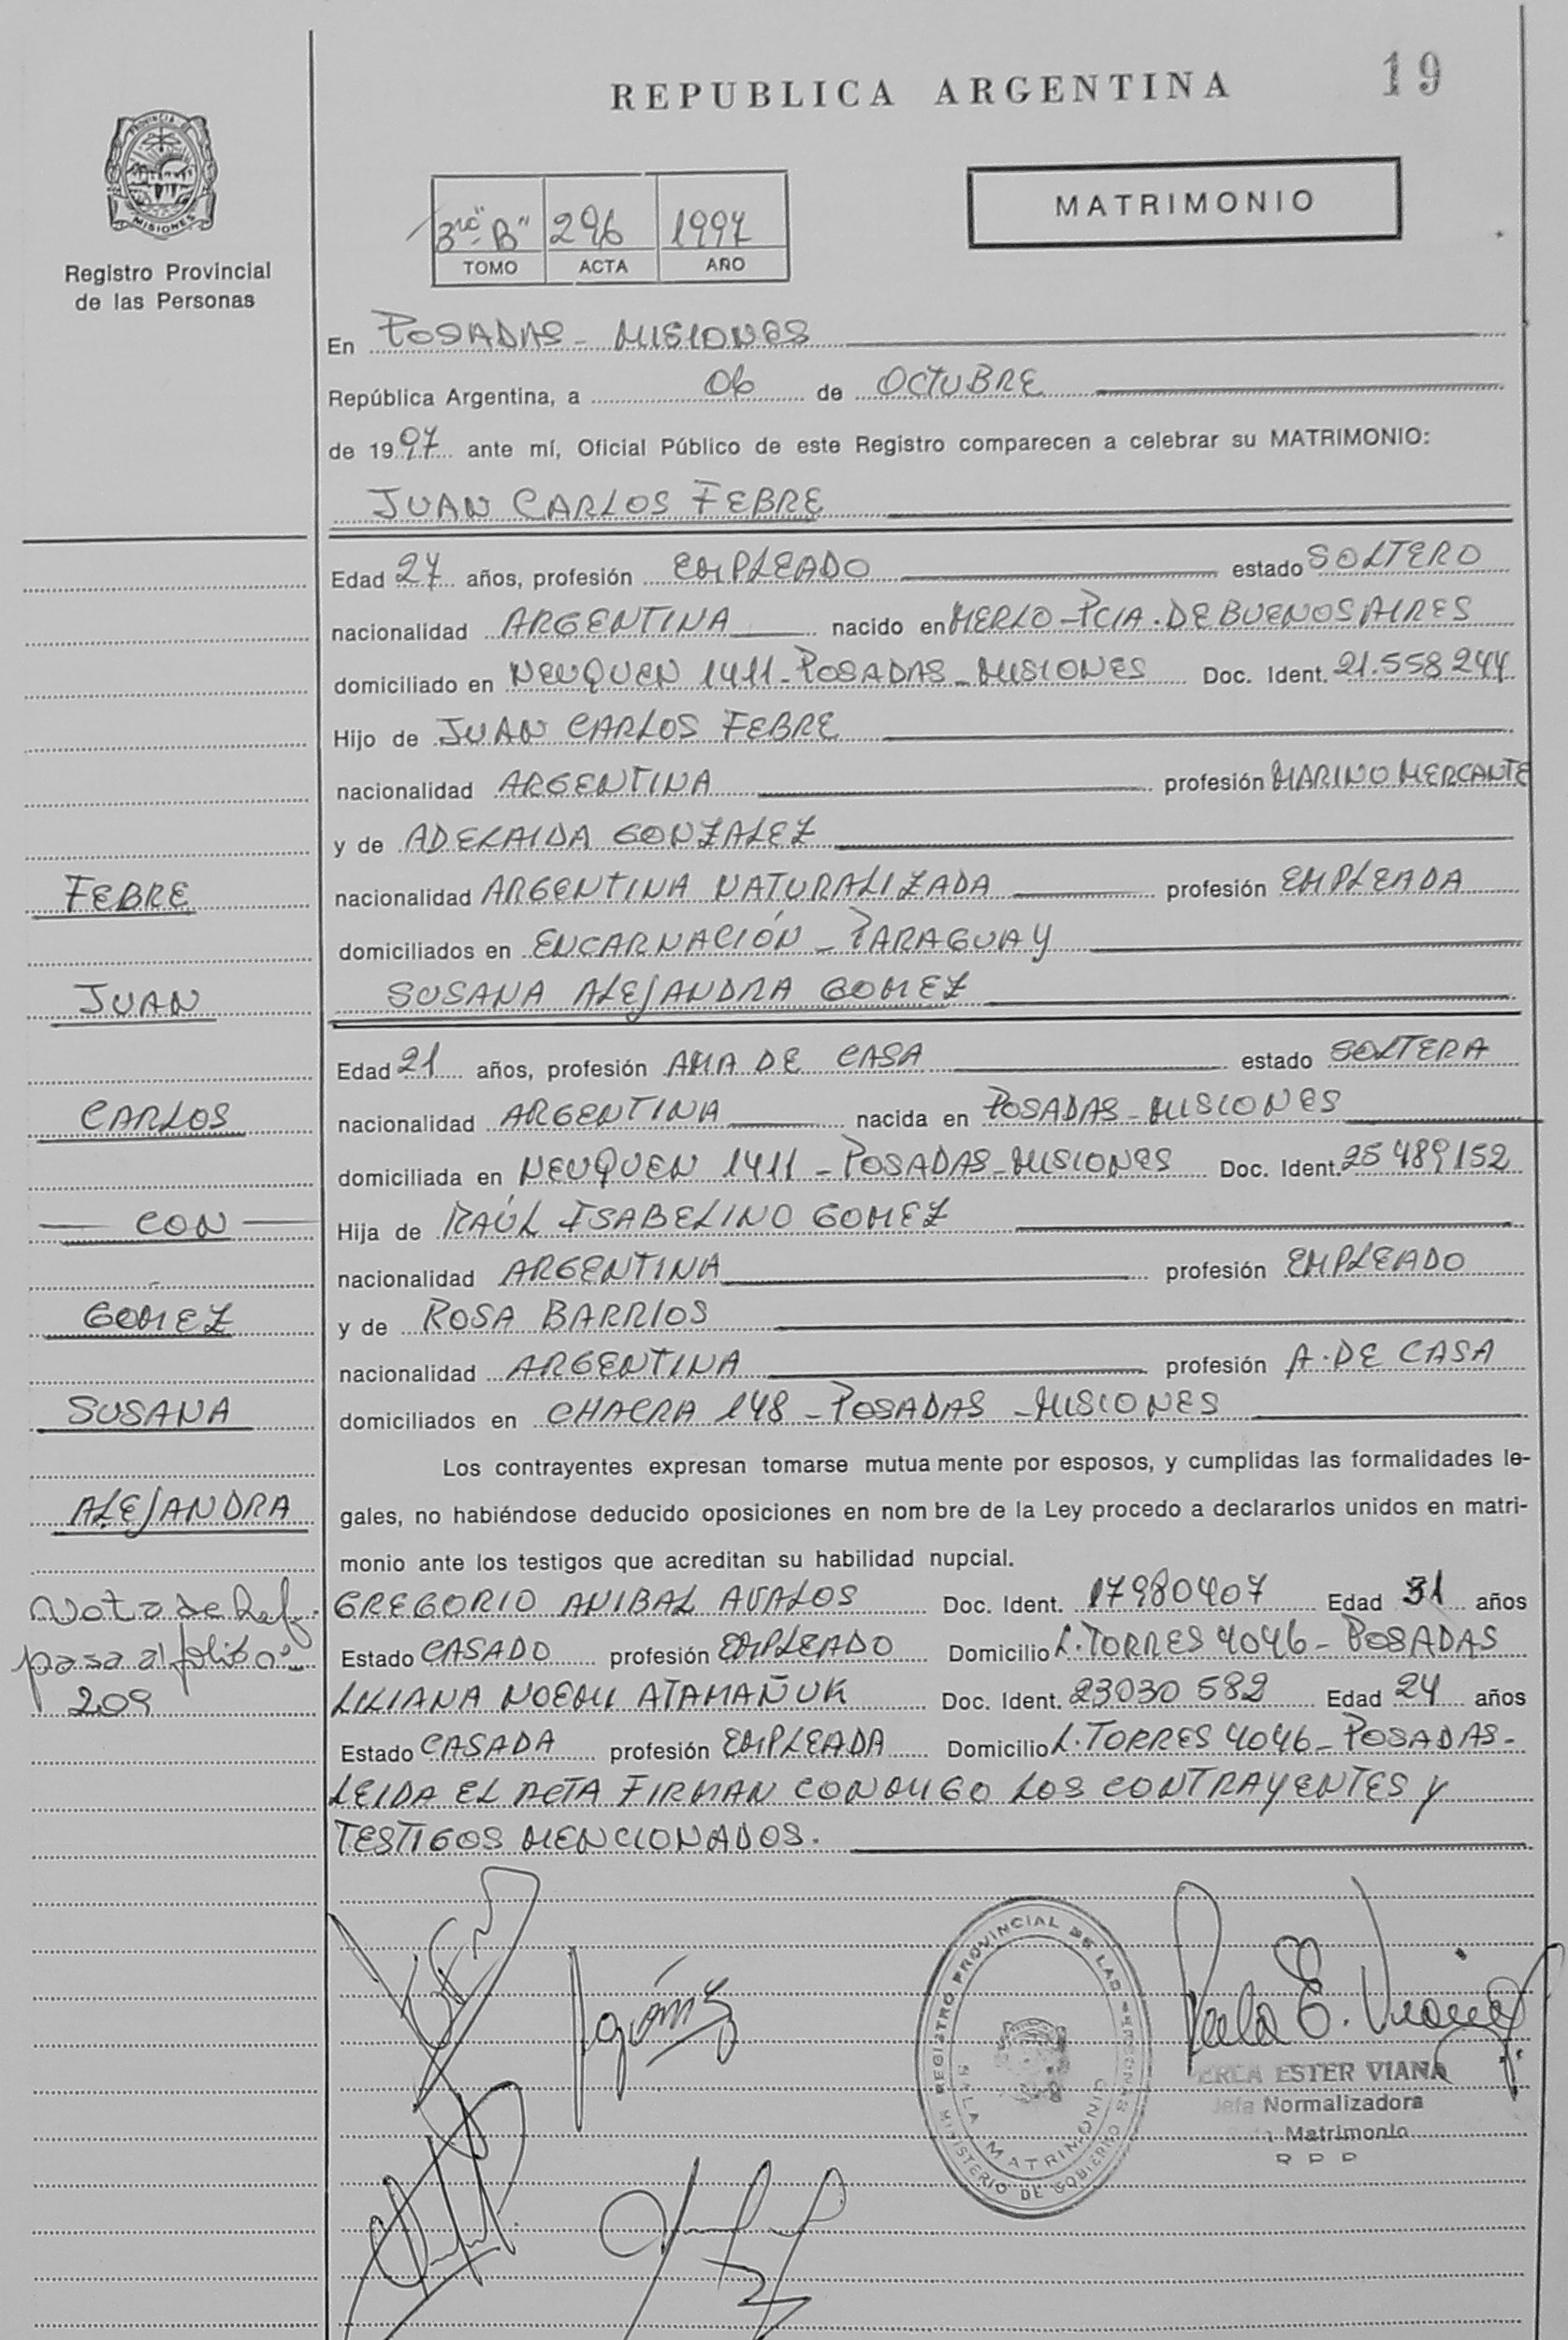 REPUBLICA ARGENTINA
19
PROVINCIA DE
MISIONES
Registro Provincial
de las Personas
3ro "B" 296 1997
TOMO ACTA AÑO
MATRIMONIO
En POSADAS - MISIONES
República Argentina, a 06 de OCTUBRE
de 1997 ante mí, Oficial Público de este Registro comparecen a celebrar su MATRIMONIO:
JUAN CARLOS FEBRE
Edad 27 años, profesión EMPLEADO estado SOLTERO
nacionalidad ARGENTINA nacido en MERLO - PCIA. DE BUENOS AIRES
domiciliado en NEUQUEN 1411 - POSADAS - MISIONES Doc. Ident. 21.558.244
Hijo de JUAN CARLOS FEBRE
nacionalidad ARGENTINA profesión MARINO MERCANTE
y de ADELAIDA GONZALEZ
nacionalidad ARGENTINA NATURALIZADA profesión EMPLEADA
domiciliados en ENCARNACIÓN - PARAGUAY
SUSANA ALEJANDRA GOMEZ
Edad 21 años, profesión AMA DE CASA estado SOLTERA
nacionalidad ARGENTINA nacida en POSADAS - MISIONES
domiciliada en NEUQUEN 1411 - POSADAS - MISIONES Doc. Ident. 25489152
Hija de RAÚL ISABELINO GOMEZ
nacionalidad ARGENTINA profesión EMPLEADO
y de ROSA BARRIOS
nacionalidad ARGENTINA profesión A. DE CASA
domiciliados en CHACRA 148 - POSADAS - MISIONES
Los contrayentes expresan tomarse mutua mente por esposos, y cumplidas las formalidades le-
gales, no habiéndose deducido oposiciones en nom bre de la Ley procedo a declararlos unidos en matri-
monio ante los testigos que acreditan su habilidad nupcial.
GREGORIO ANIBAL AVALOS Doc. Ident. 17980407 Edad 31 años
Estado CASADO profesión EMPLEADO Domicilio L. TORRES 4046 - POSADAS
LILIANA NOEMI ATAMAÑUK Doc. Ident. 23030582 Edad 24 años
Estado CASADA profesión EMPLEADA Domicilio L. TORRES 4046 - POSADAS -
LEIDA EL ACTA FIRMAN CONMIGO LOS CONTRAYENTES Y
TESTIGOS MENCIONADOS.
FEBRE
JUAN
CARLOS
CON
GOMEZ
SUSANA
ALEJANDRA
Nota de Ref.
pasa al folio nº
209
REGISTRO PROVINCIAL DE LAS PERSONAS
SALA MATRIMONIO
MINISTERIO DE GOBIERNO
ESTER VIANA
Jefa Normalizadora
Matrimonio
R P P